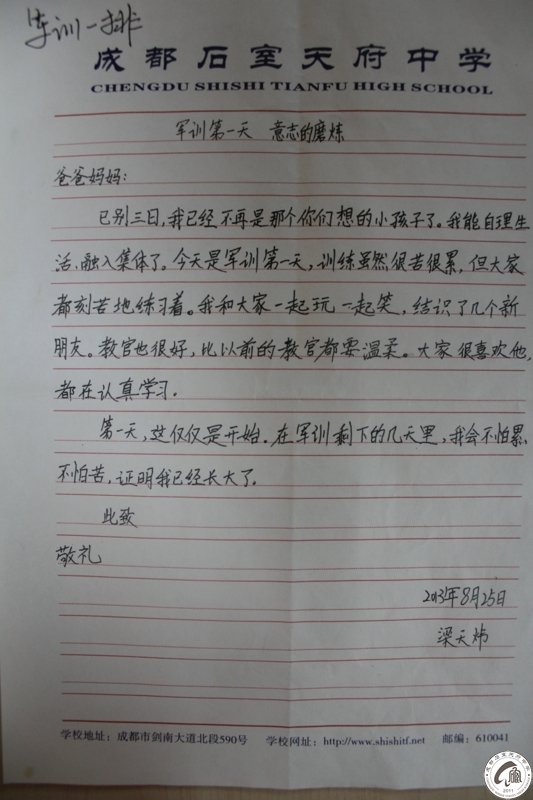 军训一排
成都石室天府中学
CHENGDU SHISHI TIANFU HIGH SCHOOL
军训第一天 意志的磨炼
爸爸妈妈:
已别三日,我已经不再是那个你们想的小孩子了。我能自理生
活,融入集体了。今天是军训第一天,训练虽然很苦很累,但大家
都刻苦地练习着。我和大家一起玩一起笑,结识了几个新
朋友。教官也很好,比以前的教官都要温柔。大家很喜欢他,
都在认真学习.
第一天,这仅仅是开始.在军训剩下的几天里,我会不怕累
不怕苦,证明我已经长大了。
此致
敬礼
2013年8月25日
梁天炜
学校地址:成都市剑南大道北段590号 学校网址:http://www.shishitf.net 邮编:610041
2011